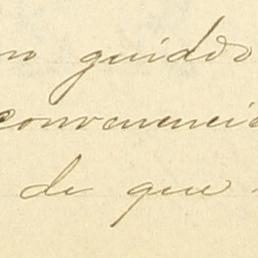 n guiddo
convenenci
de que